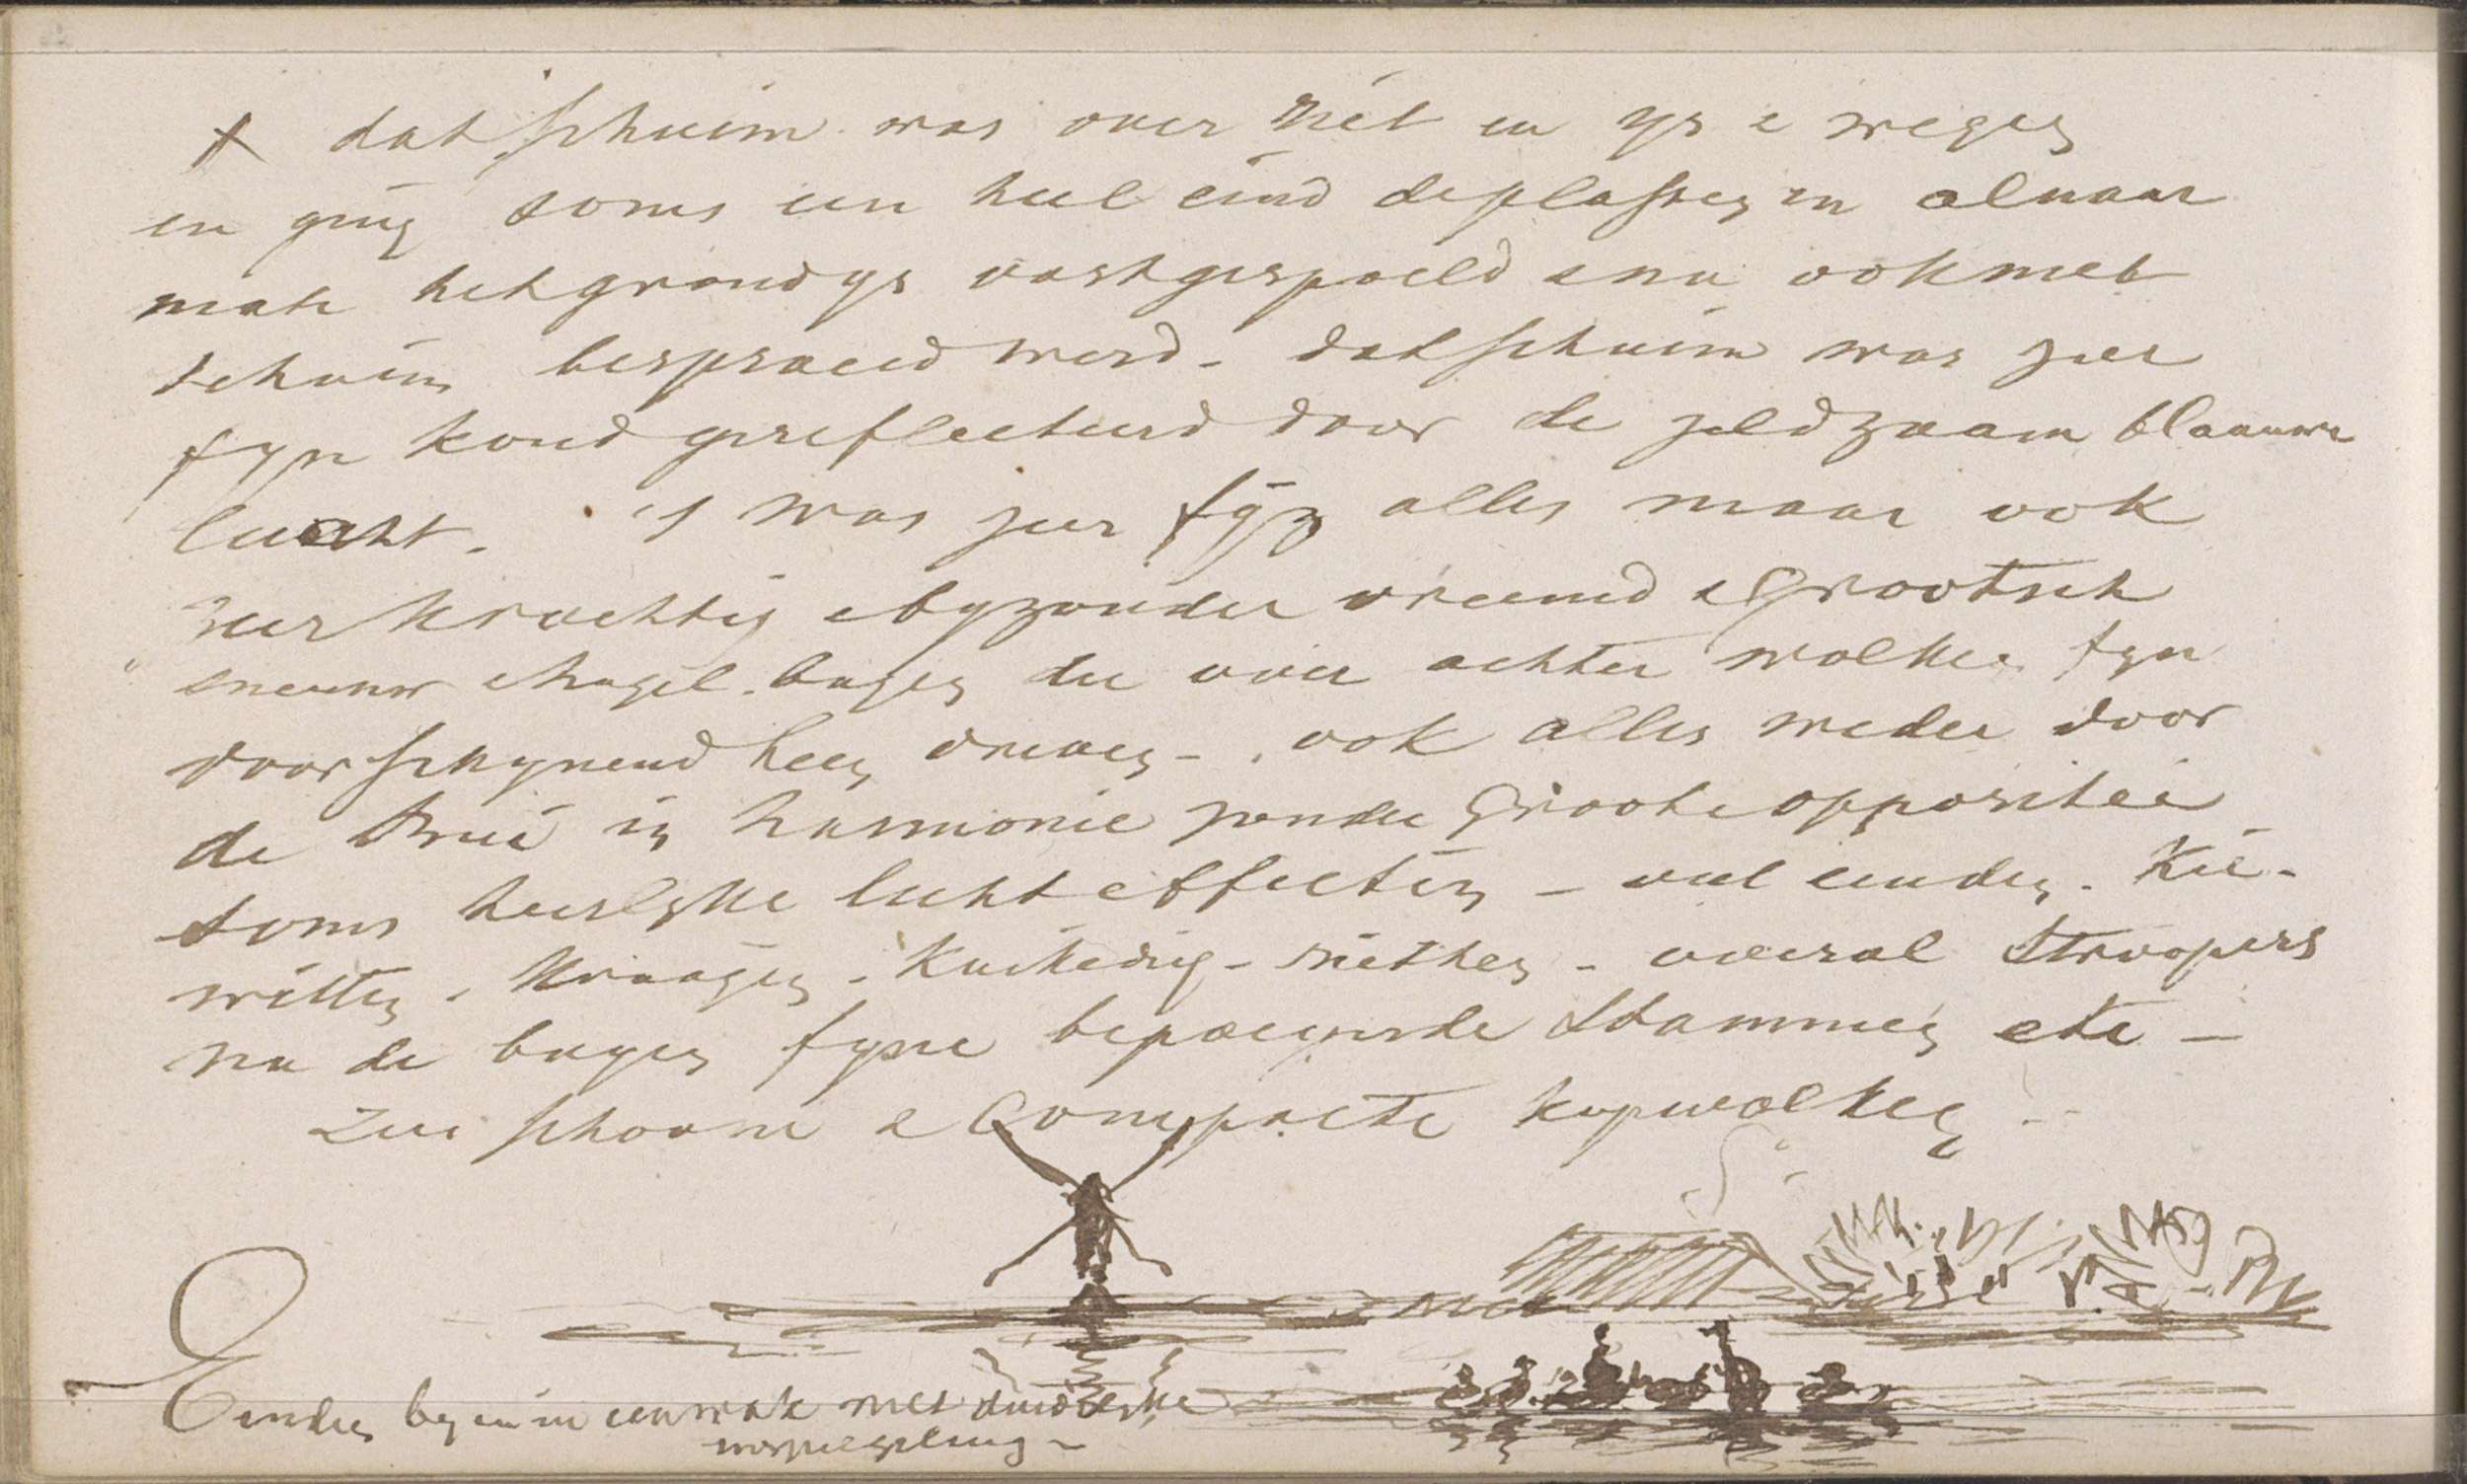 x dat schuim was over riet en ys e wegen
en ging soms een heel eind de plassen in alwaar
met het grondys vastgespoeld e nu ook met
schuim besproeid werd - dat schuim was zeer
fyn koud gereflecteerd door de zeldzaam blaauwe
lucht. 't was zeer fyn alles maar ook
zeer krachtig e byzonder vreemd e Grootsch
sneeuw e hagel buyen die voor achter wolken fyn
doorschynend heen dreven - ook alles weder door
de Bui in harmonie zonder Groote oppositie
soms heerlyke licht effecten - veel eenden. Kie-
witten. Kraayen. Kuikedief - riethen - overal stroopers
na de buyen fyne bepoeyerde stammen etc -
Zeer schoone e Compacte kopwolken -
Eenden by en in een wak met duidelyke
weerspiegeling -